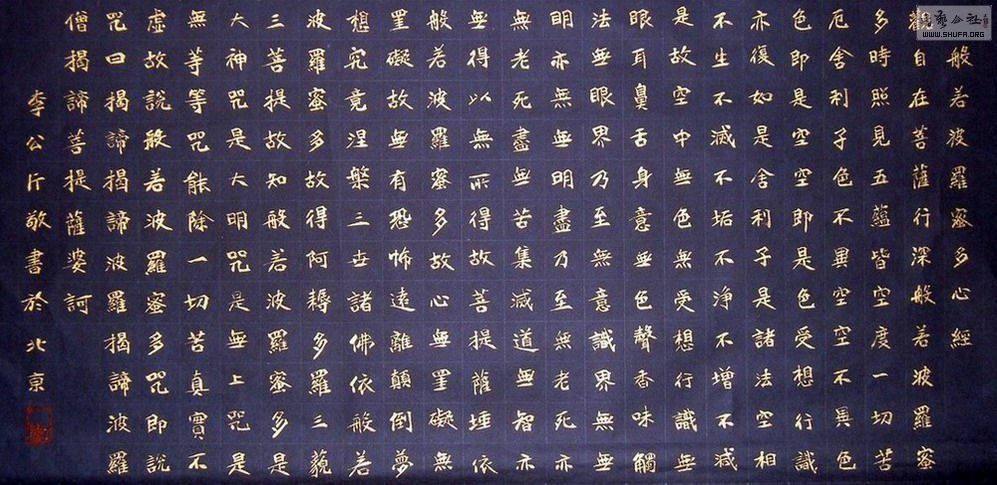 般若波羅蜜多心經
觀自在菩薩行深般若波羅蜜
多時照見五蘊皆空度一切苦
厄舍利子色不異空空不異色
色即是空空即是色受想行識
亦復如是舍利子是諸法空相
不生不滅不垢不淨不增不減
是故空中無色無受想行識無
眼耳鼻舌身意無色聲香味觸
法無眼界乃至無意識界無無
明亦無無明盡乃至無老死亦
無老死盡無苦集滅道無智亦
無得以無所得故菩提薩埵依
般若波羅蜜多故心無罣礙無
罣礙故無有恐怖遠離顛倒夢
想究竟涅槃三世諸佛依般若
波羅蜜多故得阿耨多羅三藐
三菩提故知般若波羅蜜多是
大神咒是大明咒是無上咒是
無等等咒能除一切苦真實不
虛故說般若波羅蜜多咒即說
咒曰揭諦揭諦波羅揭諦波羅
僧揭諦菩提薩婆訶
李公敬書於北京
公社
WWW.SHUFA.ORG